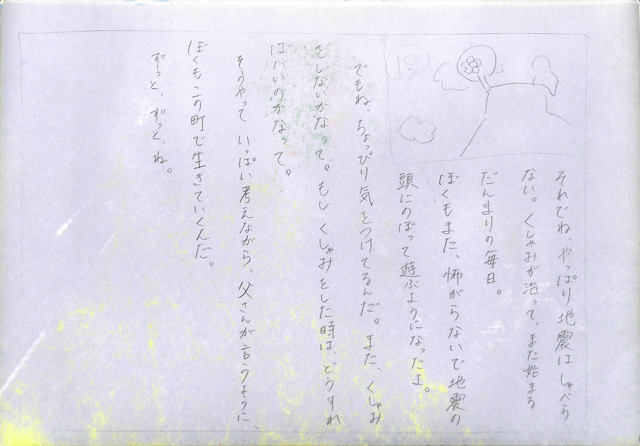 それでね、やっぱり地震はしゃべら
ない。くしゃみが治って、また始まる
だんまりの毎日。
ぼくもまた、怖がらないで地震の
頭にのぼって遊ぶようになったよ。
でもね、ちょっぴり気をつけてるんだ。また、くしゃみ
をしないかなって。もしくしゃみをした時は、どうすれ
ばいいのかなって。
そうやっていっぱい考えながら、父さんが言うように、
ぼくもこの町で生きていくんだ。
ずっと、ずっとね。